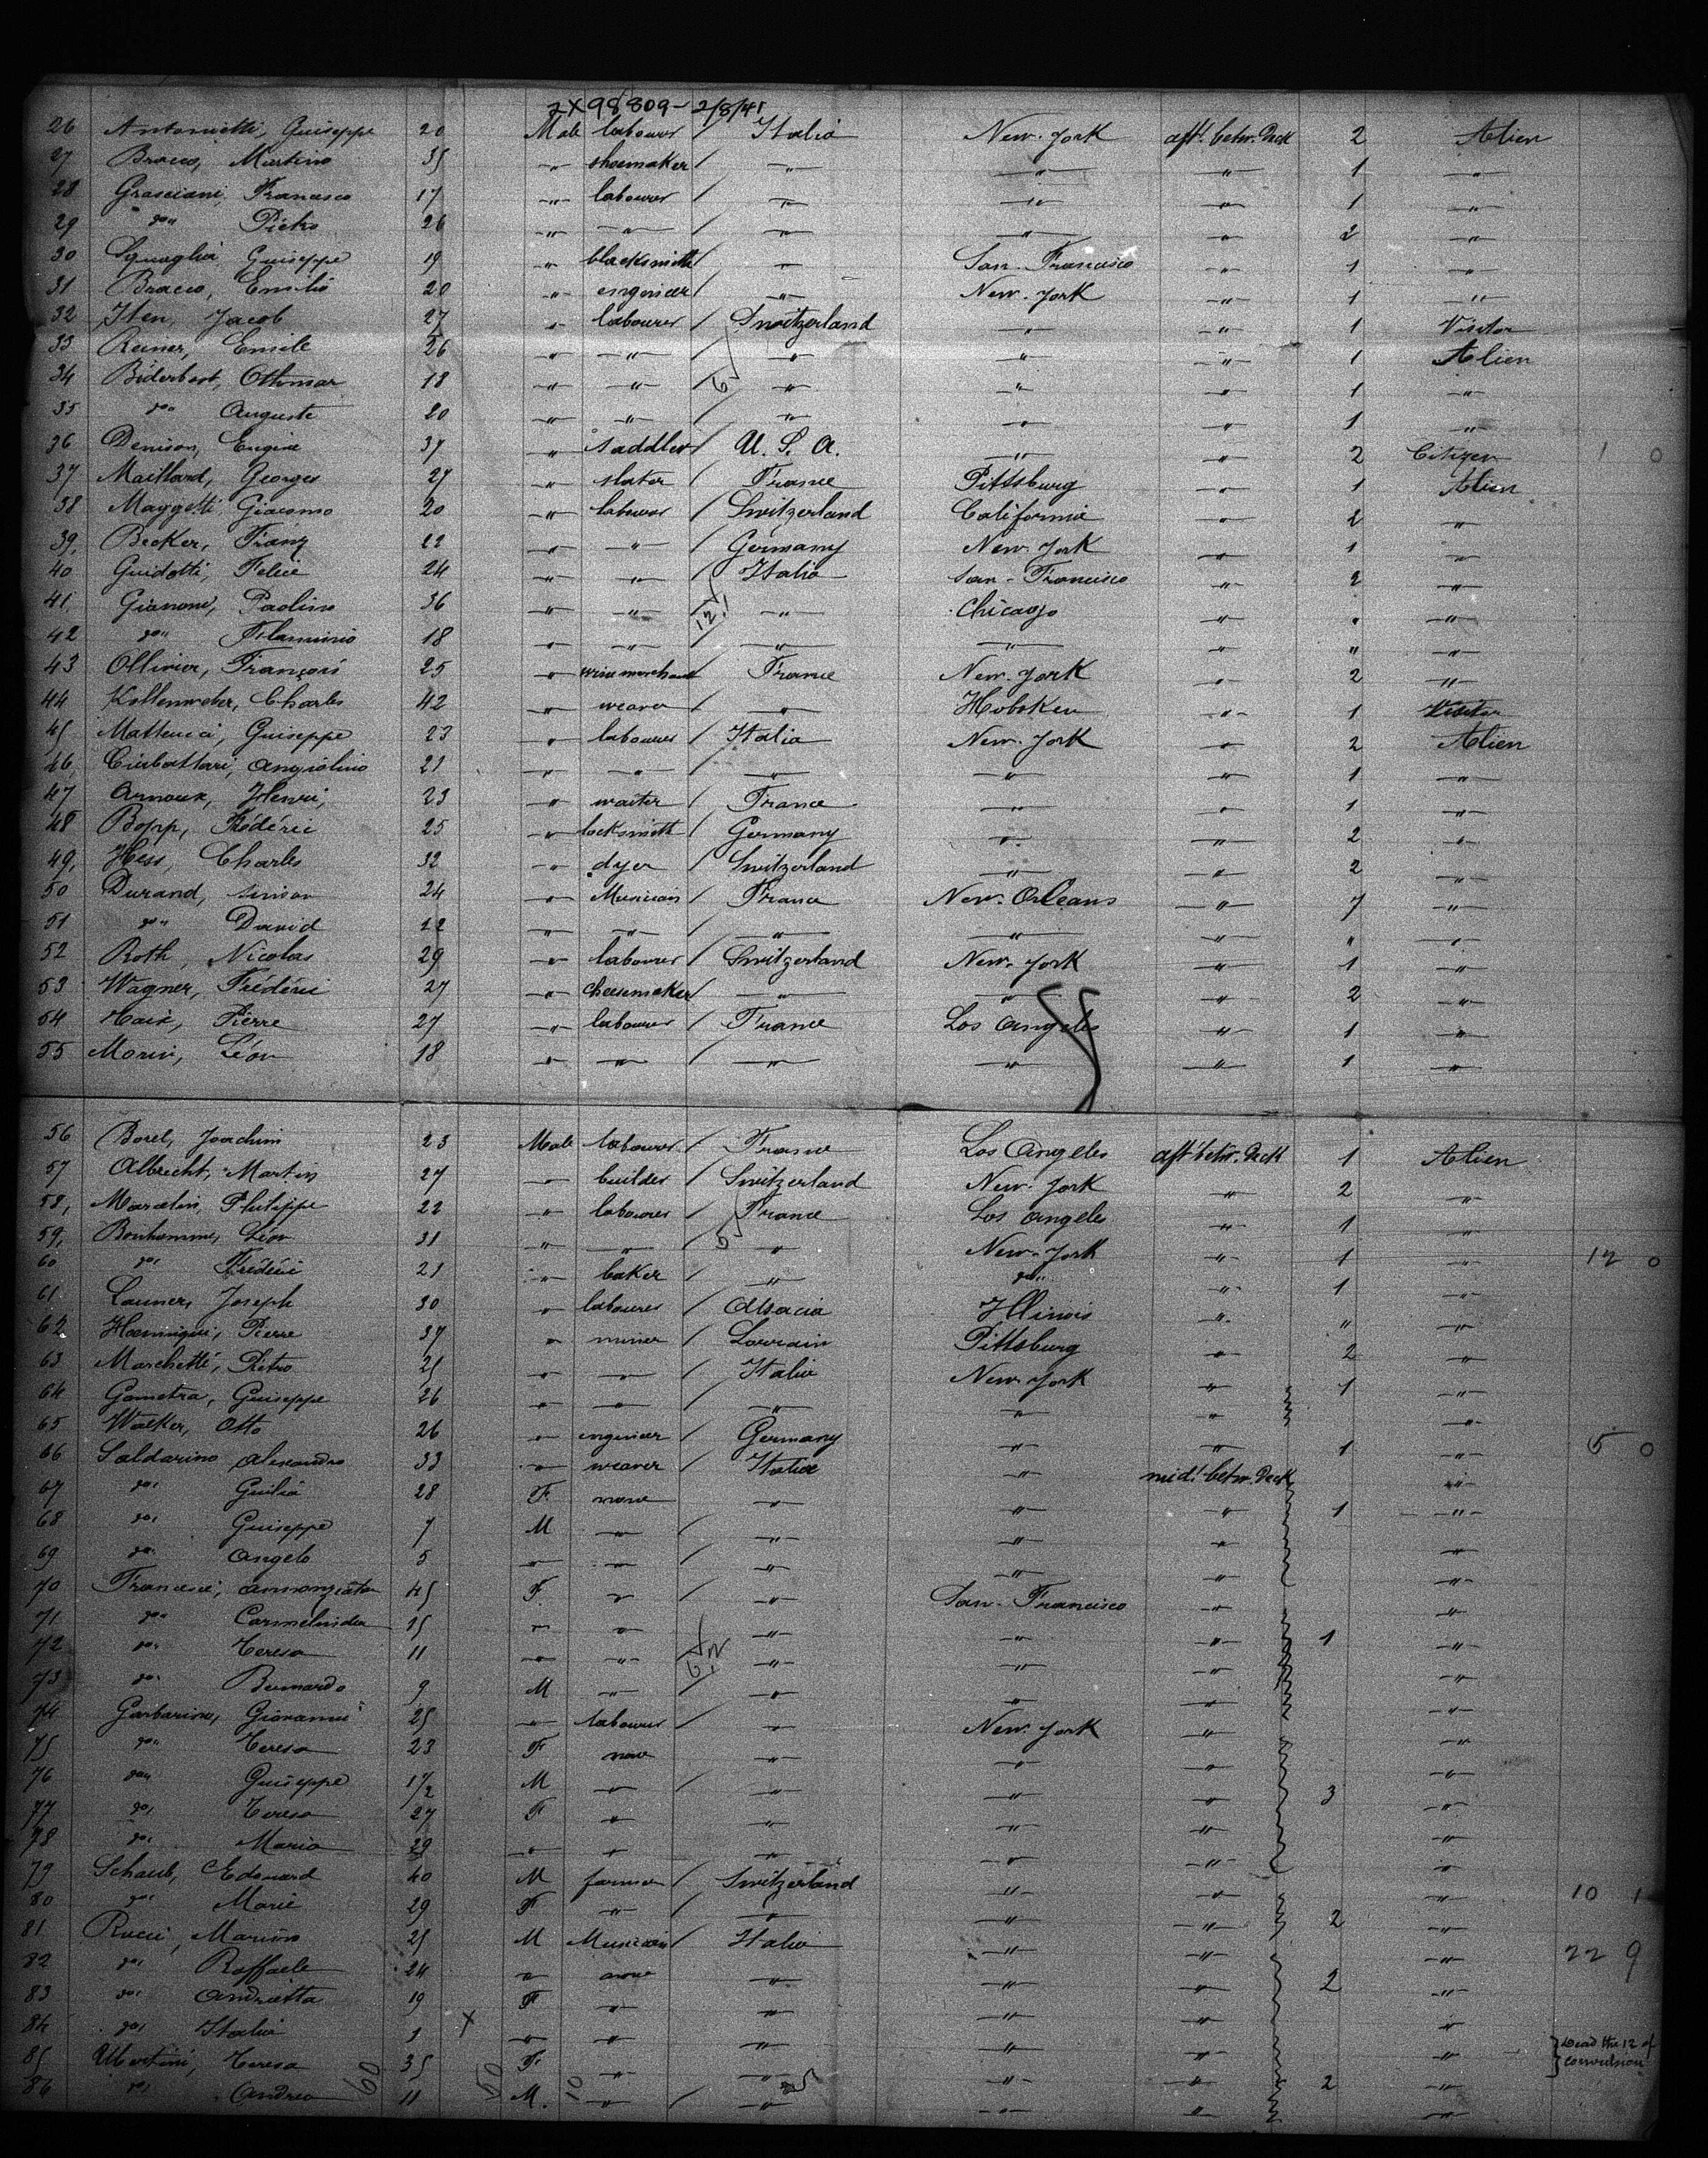 7X98809- 2/8/41
26 Antonietti, Guiseppe 20 Male labourer / Italia New-York aft. betw. Deck 2 Alien
27 Bracco, Martino 35 " shoemaker / " " " 1 "
28 Grasciani, Francesco 17 " labourer / " " " 1 "
29 do Pietro 26 " " / " " " 2 "
30 Squaglia Guiseppe 19 " blacksmith / " San-Francisco " 1 "
31 Bracco, Emilio 20 " engenier / " New-York " 1 "
32 Iten, Jacob 27 " labourer / Switzerland " " 1 Visitor
33 Reiner, Emile 26 " " / " " " 1 Alien
34 Biderbost, Othmar 18 " " / " " " 1 "
35 do Auguste 20 " " / " " " 1 "
36 Denison, Eugene 37 " saddler / U. S. A. " " 2 Citizen 1 0
37 Maillard, Georges 27 " slater / France Pittsburg " 1 Alien
38 Maggetti, Giacomo 20 " labourer / Switzerland California " 2 "
39, Becker, Franz 22 " " / Germany New-York " 1 "
40 Guidotti, Felice 24 " " / Italia San-Francisco " 2 "
41, Gianone, Paolino 36 " " / " Chicago " " "
42 do Flaminio 18 " " / " " " " "
43 Ollivier, François 25 " wine merchant France New-York " 2 "
44 Kollenweber, Charles 42 " weaver / " Hoboken " 1 Visitor
45 Matteucci, Guiseppe 23 " labourer / Italia New-York " 2 Alien
46, Ciabattari, Angiolino 21 " " / " " " 1 "
47 Arnoux, Henri, 23 " waiter / France " " 1 "
48 Bopp, Frédéric 25 " locksmith / Germany " " 2 "
49, Hess, Charles 32 " dyer / Switzerland " " 2 "
50 Durand, Simon 24 " Musician / France New-Orleans " 7 "
51 do David 22 " " / " " " " "
52 Roth, Nicolas 29 " labourer / Switzerland New-York " 1 "
53 Wagner, Frédéric 27 " cheesemaker / " " " 2 "
54 Haix, Pierre 27 " labourer / France Los Angeles " 1 "
55 Morin, Léon 18 " " / " " " 1 "
56 Borel, Joachim 23 Male labourer / France Los Angeles aft betw. Deck 1 Alien
57 Albrecht, Martin 27 " builder / Switzerland New-York " 2 "
58, Marcelin, Philippe 22 " labourer / France Los Angeles " 1 "
59, Bonhomme, Léon 31 " " / " New-York " 1 " 12 0
60 do Frédéric 21 " baker / " do " 1 "
61 Launer, Joseph 30 " labourer / Alsacia Illinois " " "
62 Pierre 37 " miner / Lorrain Pittsburg " 2 "
63 Marchetti, Pietro 25 " " / Italia New-York " 1 "
64 Gametra, Guiseppe 26 " " / " " " "
65 Walker, Otto 26 " ingenieer / Germany " " 1 " 5 0
66 Saldarino Alexandro 33 " weaver / Italia " mid. betw. Deck "
67 do Guilia 28 F. none " " " 1 "
68 do Guiseppe 7 M " / " " " "
69 do Angelo 5 " " / " " " "
70 Francesci, Annonziata 45 F. " / " San-Francisco " "
71 do Carmelinda 15 " " " " " 1 "
72 do Teresa 11 " " " " " "
73 do Bernardo 9 M " " " " "
74 Garbarino, Giovanni 25 " labourer / " New-York " "
75 do Teresa 23 F none " " " "
76 do Guiseppe 1 1/2 M " / " " " 3 "
77 do Teresa 27 F " " " " "
78 do Maria 29 " " " " " "
79 Schaub, Edouard 40 M farmer / Switzerland " " " 10 1
80 do Marie 29 F " / " " " 2 "
81 Rucci, Marino 25 M Musician / Italia " " " 22 9
82 do Raffaele 24 " none " " " 2 "
83 do Andrietta 19 F " " " " "
84 do Italia 1 X " " " " " " Dead the 12 of
85 Teresa 35 F. " " " " " convulsion
86 do Andrea 11 M. " / " " " 2 "
60 50 10